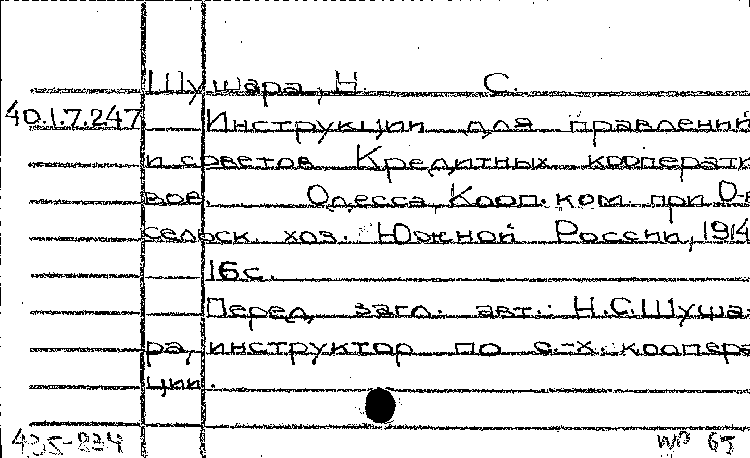 Шушара, Н. С.
40.1.7.247 Инструкции для правлений
и советов Кредитных кооперати
вов. Одесса, Кооп. ком. при О-в
сельск. хоз. Южной России, 1914
16с.
Перед загл. авт.: Н.С.Шуша-
ра, инструктор по с.-х. коопера
ции.
435-824 WP 65